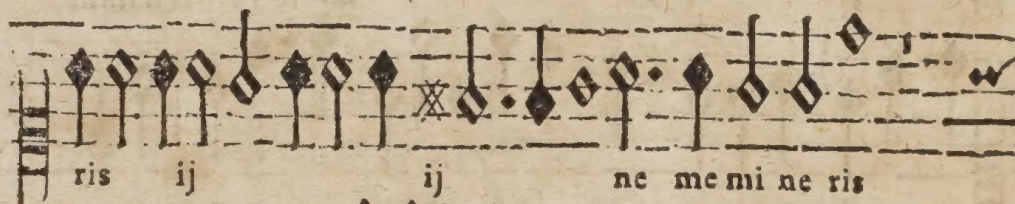 ris ij ij ne me mi ne ris